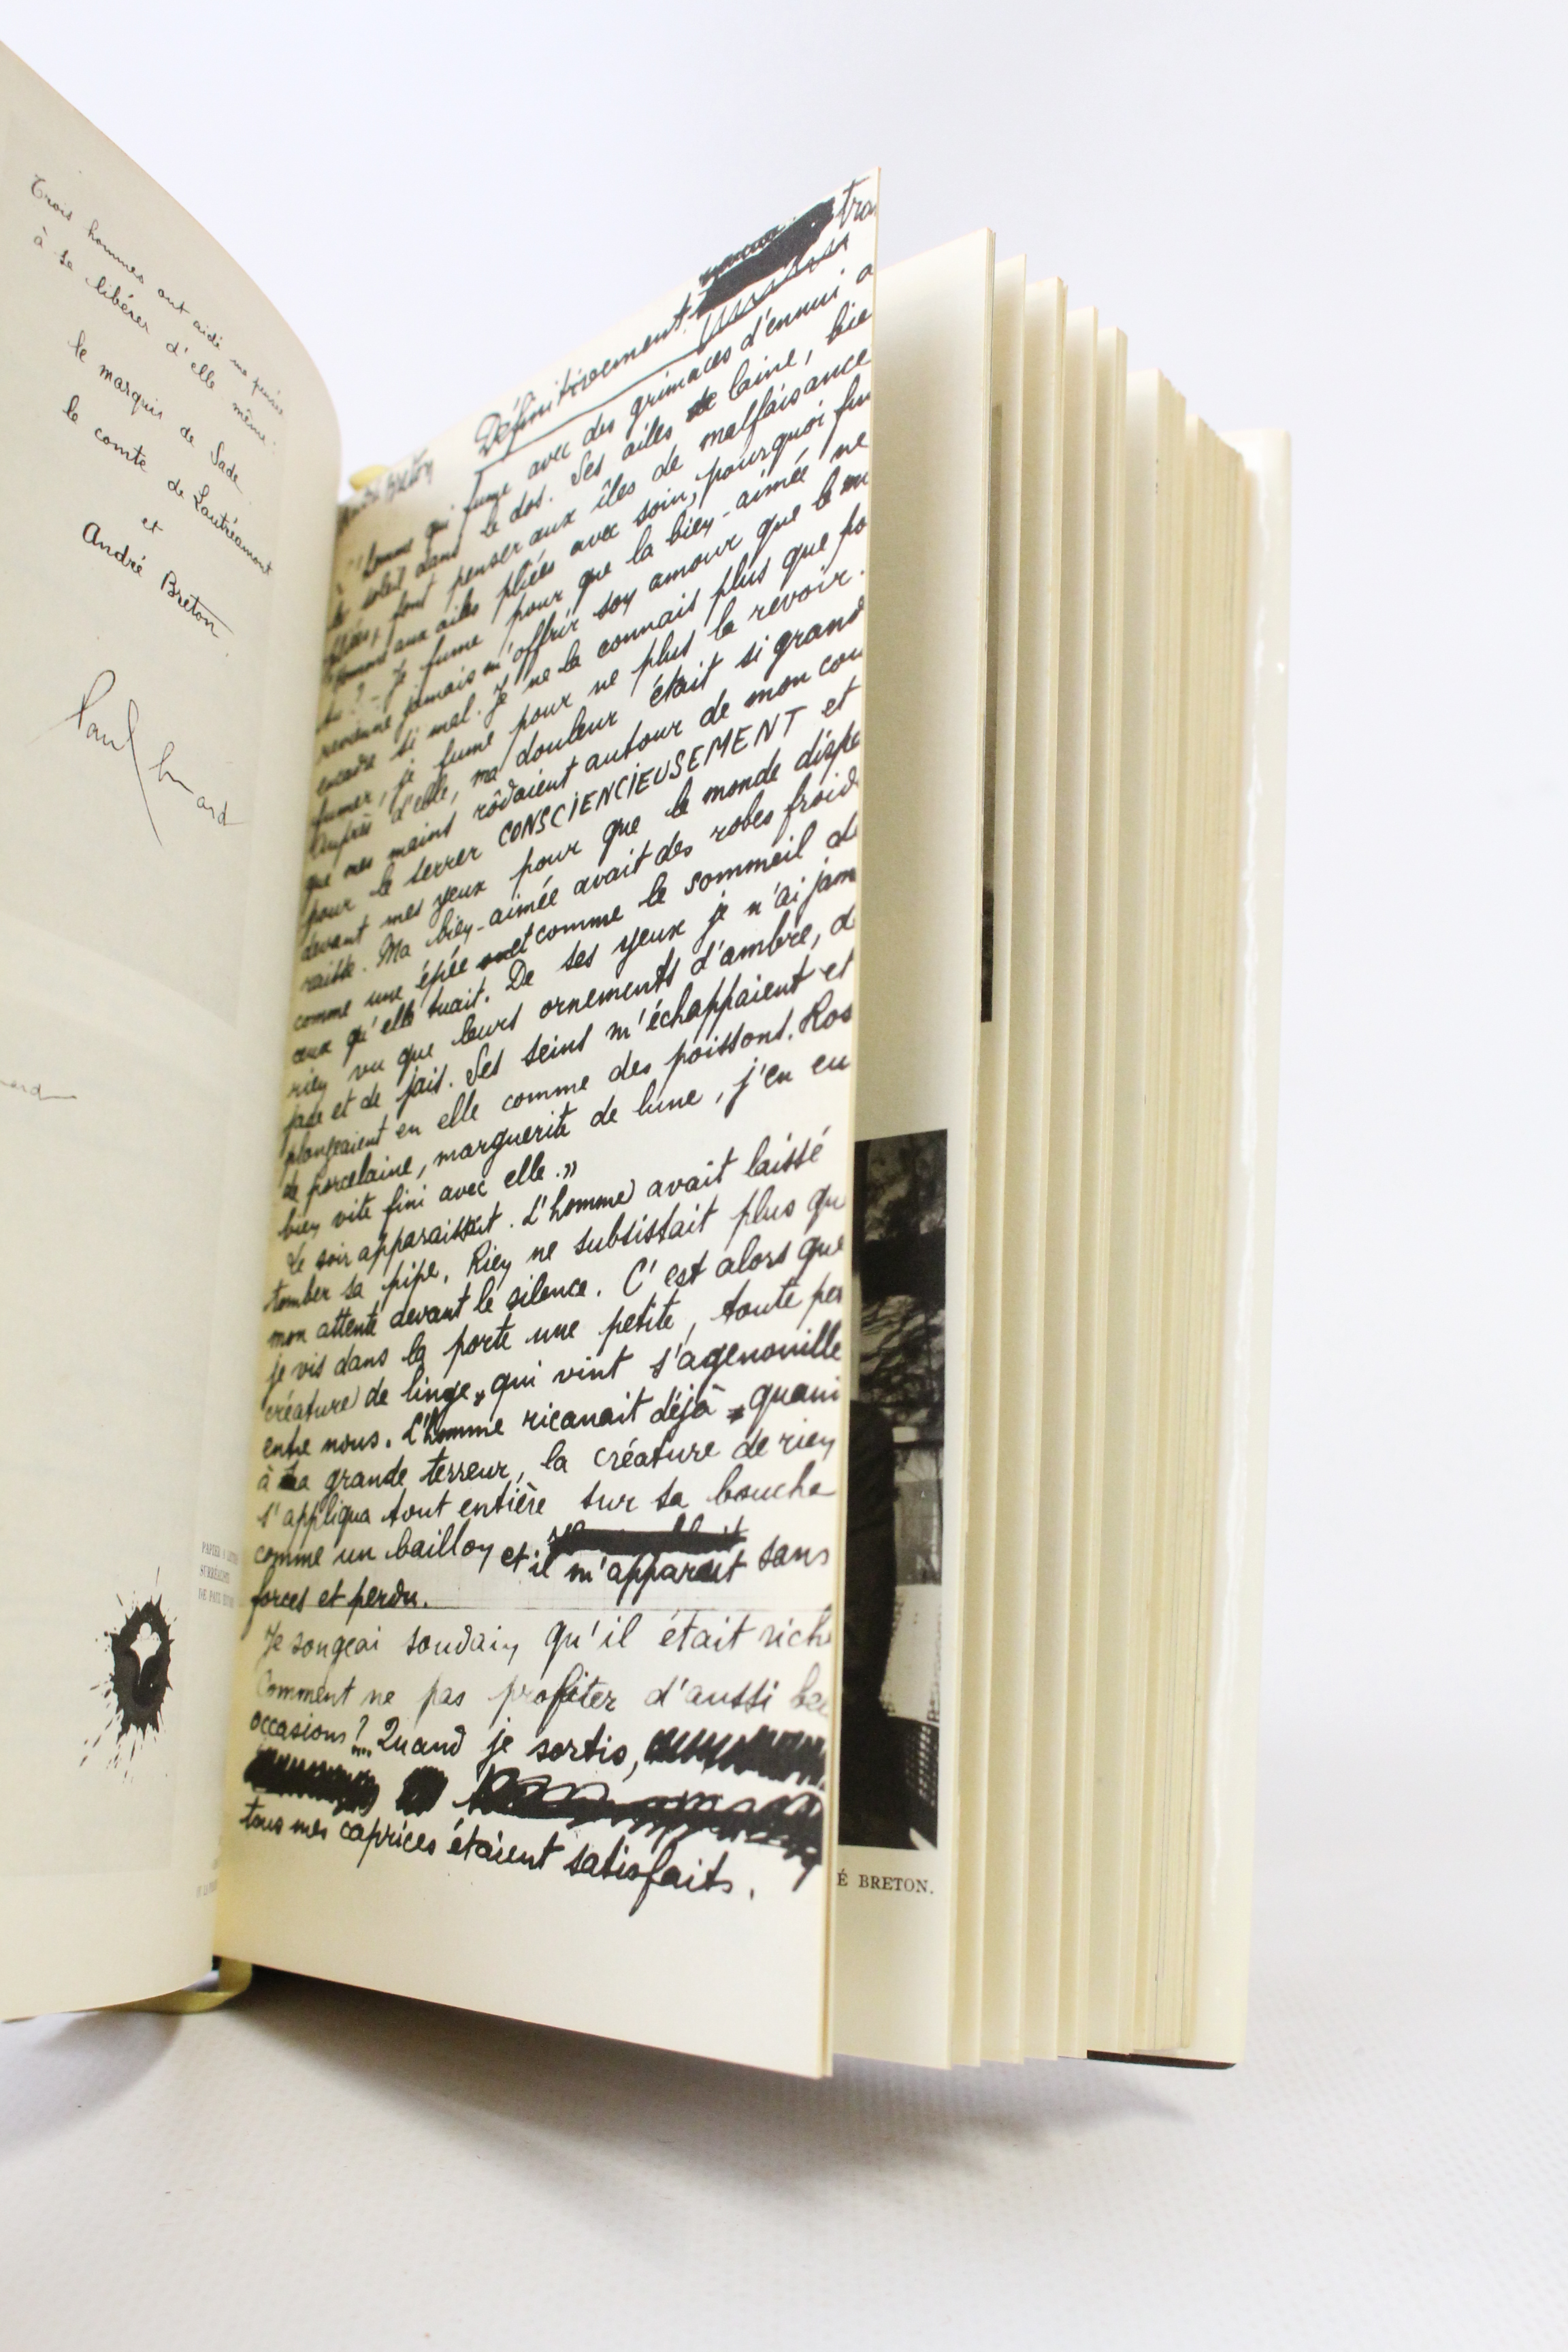 Trois hommes ont aidé ma pensée
à se libérer d'elle même :
le marquis de Sade
le comte de Lautréamont
et
André Breton.
Paul Eluard
PAPIER
SURRÉALISTE
DE PAUL
Définitivement tra
L'homme qui fume avec des grimaces d'ennui a
le soleil dans le dos. Ses ailes de laine, bie
pliées, font penser aux îles de malfaisance
comme aux ailes pliées avec soin, pourquoi fu
tu ? - Je fume pour que la bien-aimée ne
revienne jamais m'offrir son amour que le m
encadre si mal. Je ne la connais plus que po
fumer, je fume pour ne plus la revoir.
Auprès d'elle, ma douleur était si grand
que mes mains rôdaient autour de mon cou
pour le serrer CONSCIENCIEUSEMENT et
devant mes yeux pour que le monde dispa
raisse. Ma bien-aimée avait des robes froid
comme une épée et comme le sommeil d
ceux qu'elle tuait. De ses yeux je n'ai jam
rien vu que leurs ornements d'ambre, d
jade et de jais. Ses seins m'échappaient et
plongeaient en elle comme des poissons. Ros
de porcelaine, marguerite de lune, j'en eu
bien vite fini avec elle. »
Le soir apparaissait. L'homme avait laissé
tomber sa pipe. Rien ne subsistait plus qu
mon attente devant le silence. C'est alors que
je vis dans la porte une petite, toute pe
créature de linge, qui vint s'agenouille
entre nous. L'homme ricanait déjà quan
à sa grande terreur, la créature de rien
s'appliqua tout entière sur sa bouche
comme un baillon et il m'apparut sans
forces et perdu.
Je songeai soudain qu'il était rich
Comment ne pas profiter d'aussi be
occasions ? .... Quand je sortis,
tous mes caprices étaient satisfaits.
É BRETON.